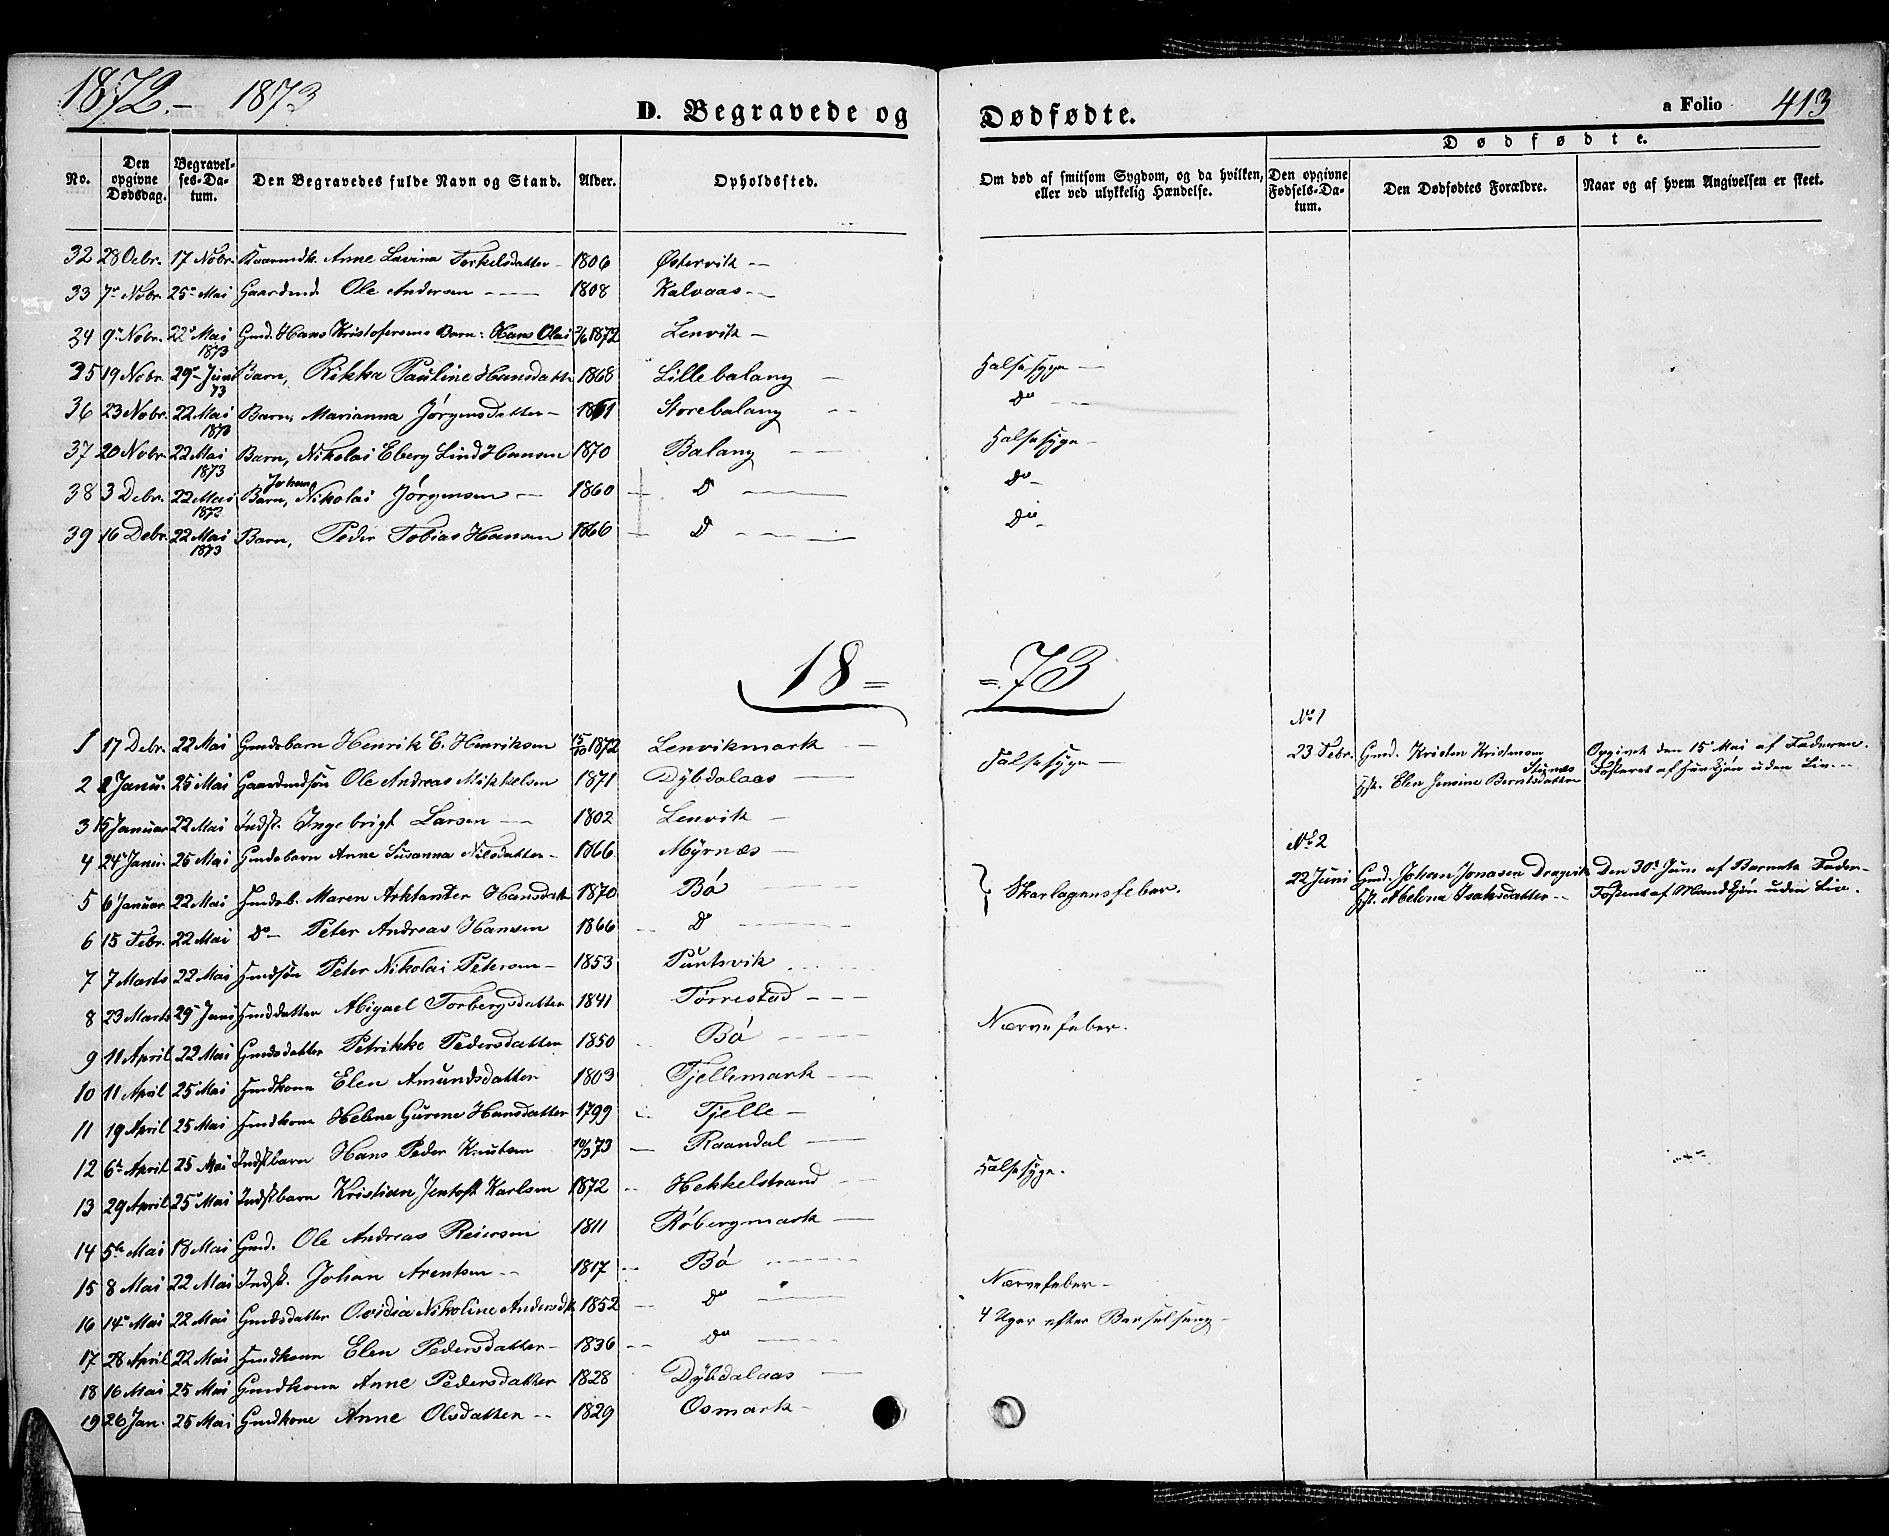 1872.- 1873
D. Begravede og Dødfødte.
a Folio 413
No.
Den opgivne Dødsdag.
Begravelses-Datum.
Den Begravedes fulde Navn og Stand.
Alder.
Opholdssted.
Om død af smitsom Sygdom, og da hvilken, eller ved ulykkelig Hændelse.
Dødfødte.
Den opgivne Fødsels-Datum.
Den Dødfødtes Forældre.
Naar og af hvem Angivelsen er skeet.
32 28 Octbr. 17 Nobr. Anne Lavina Torkelsdatter - 1806 Østervik -
33 7de Nobr. 25de Mai Gaardmd. Ole Andersen - 1808 Kalvaas -
34 9de Nobr. 22de Mai 1873 Gmd. Hans Kristofersens Barn: Hans Olai 1872 Lenvik -
35 19 Nobr. 29de Juni 73 Barn, Rikka Pauline Hansdatter 1868 Lillebalang - Halssyge -
36 23 Nobr. 22 Mai 1873 Barn, Marianna Jørgensdatter - 1861 Storebalang - Do -
37 20 Nobr. 22 Mai 1873 Barn, Nikolai Eberg Lind Hansen 1870 Balang - Halssyge -
38 3 Debr. 22 Mai 1873 Barn, Johan Nikolai Jørgensen - 1860 D - Do -
39 16 Debr. 22 Mai 1873 Barn, Peder Tobias Hansen 1866 D - Do -
18 = = 73
No 1
1 17 Debr. 22 Mai Gmdsbarn Henrik E. Henriksen 15/10 1872 Lenvikmark - 23 Febr. Gmd. Kristen Kristensen Stignæs Opgivet den 15de Mai af Faderen.
2 2 Janu. 25 Mai Gaardmdsøn Ole Andreas Mikkelsen 1871 Dybdalaas - Halssyge - Hst. Elen Jensine Berntsdatter Fosteret af Hunkjøn uden Liv. -
3 15 Januar 22 Mai Indst. Ingebrigt Larsen - 1802 Lenvik -
No 2
4 24de Janu. 25 Mai Gmdsbarn Anne Susanna Nilsdatter - 1866 Myrnæs -
5 6 Januar 22 Mai Gmdsb. Maren Arktanter Hansdatter 1870 Bø } Skarlagensfeber. 22 Juni Gmd. Johan Jonasen Dragvik Den 30de Juni af Barnets Fader -
6 15 Febr. 22 Mai Do - Peter Andreas Hansen 1866 D - Hst. Helena Isaksdatter - Fosteret af Mandkjøn uden Liv.
7 7 Marts 22 Mai Gmdsøn Peter Nikolai Petersen - 1853 Puntsvik
8 23 Marts 29de Juni Gmddatter Abigael Torbergsdatter 1841 Tørrestad -
9 11 April 22 Mai Gmdsdatter Petrikke Pedersdatter 1850 Bø - Nærvefeber.
10 11 April 25 Mai Gmdkone Elen Amundsdatter 1803 Fjellemark -
11 19 April 25 Mai Gmdkone Helene Gurene Hansdatter 1799 Fjelle -
12 6te April 25 Mai Indstbarn Hans Peder Knutsen 73 Raandal -
13 29 April 25de Mai Indstbarn Kristian Jentoft Karlsen 1872 Hekkelstrand - Halssyge.
14 5te Mai 18 Mai Gmd. Ole Andreas Reiersen 1811 Røbergmark -
15 8 Mai 22 Mai Indst. Johan Arentsen - 1817 Bø -
16 14de Mai 22 Mai Gmdsdatter Ovidia Nikoline Andersdtr 1852 Do - Nærvefeber -
17 28 April 22 Mai Gmdkone Elen Pedersdatter - 1836 Do - 4 Uger efter Barselseng -
18 16 Mai 25 Mai Gmdkone Anne Pedersdatter 1828 Dybdalaas -
19 26 Jan. 25 Mai Gmdkone Anne Olsdatter - 1829 Osmark -